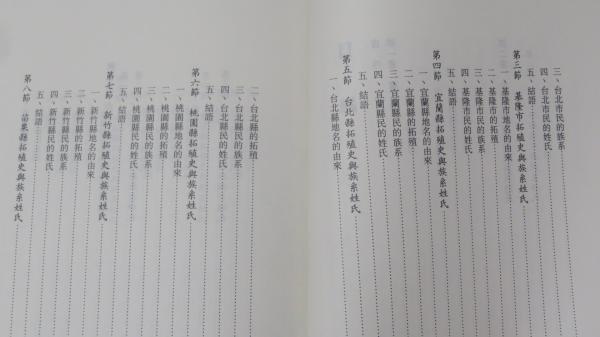 三、台北市民的族系
四、台北市民的姓氏
五、結語
第三節 基隆市拓殖史與族系姓氏
一、基隆市地名的由來
二、基隆市的拓殖
三、基隆市民的族系
四、基隆市民的姓氏
五、結語
第四節 宜蘭縣拓殖史與族系姓氏
一、宜蘭縣地名的由來
二、宜蘭縣的拓殖
三、宜蘭縣民的族系
四、宜蘭縣民的姓氏
五、結語
第五節 台北縣拓殖史與族系姓氏
一、台北縣地名的由來
二、台北縣的拓殖
三、台北縣民的族系
四、台北縣民的姓氏
五、結語
第六節 桃園縣拓殖史與族系姓氏
一、桃園縣地名的由來
二、桃園縣的拓殖
三、桃園縣民的族系
四、桃園縣民的姓氏
五、結語
第七節 新竹縣拓殖史與族系姓氏
一、新竹縣地名的由來
二、新竹縣的拓殖
三、新竹縣民的族系
四、新竹縣民的姓氏
五、結語
第八節 苗栗縣拓殖史與族系姓氏